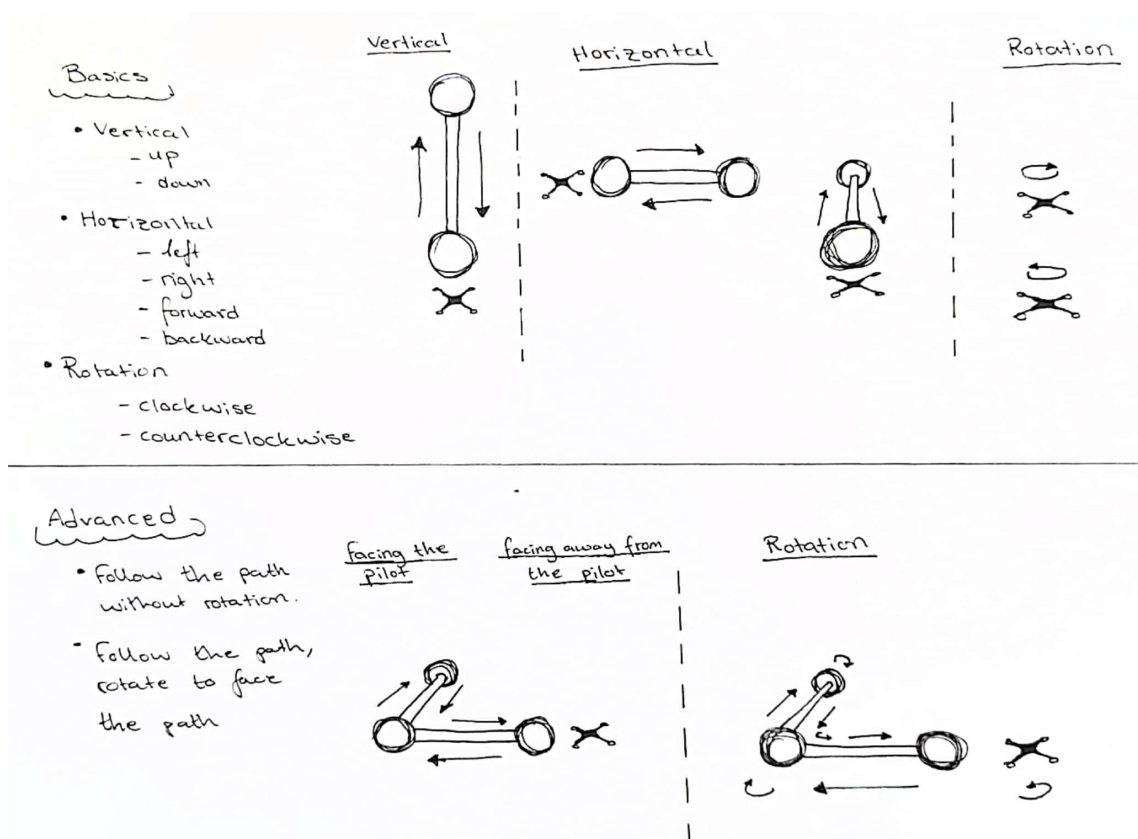 Basics
• Vertical
- up
- down
• Horizontal
- left
- right
- forward
- backward
• Rotation
- clockwise
- counterclockwise
Vertical
Horizontal
Rotation
Advanced
• Follow the path
without rotation.
• Follow the path,
rotate to face
the path
facing the
pilot
facing away from
the pilot
Rotation